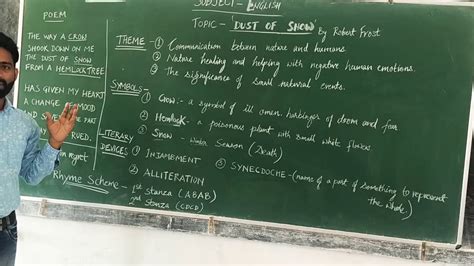 SUBJECT - ENGLISH
TOPIC - 'DUST OF SNOW' by Robert Frost
POEM
THE WAY A CROW
SHOOK DOWN ON ME
THE DUST OF SNOW
FROM A HEMLOCK TREE
HAS GIVEN MY HEART
A CHANGE OF MOOD
AND SOME PART
RUED.
THEME - ① Communication between nature and humans.
② Nature healing and helping with negative human emotions.
③ The significance of small natural events.
SYMBOLS - ① Crow - a symbol of ill omen harbinger of doom and fear
② Hemlock - a poisonous plant with small white flowers.
③ Snow - Winter Season (Death)
LITERARY DEVICES - ① INJAMBMENT
② ALLITERATION
③ SYNECDOCHE - (name of a part of something to represent the whole)
Rhyme Scheme - 1st Stanza (ABAB)
2nd Stanza (CDCD)